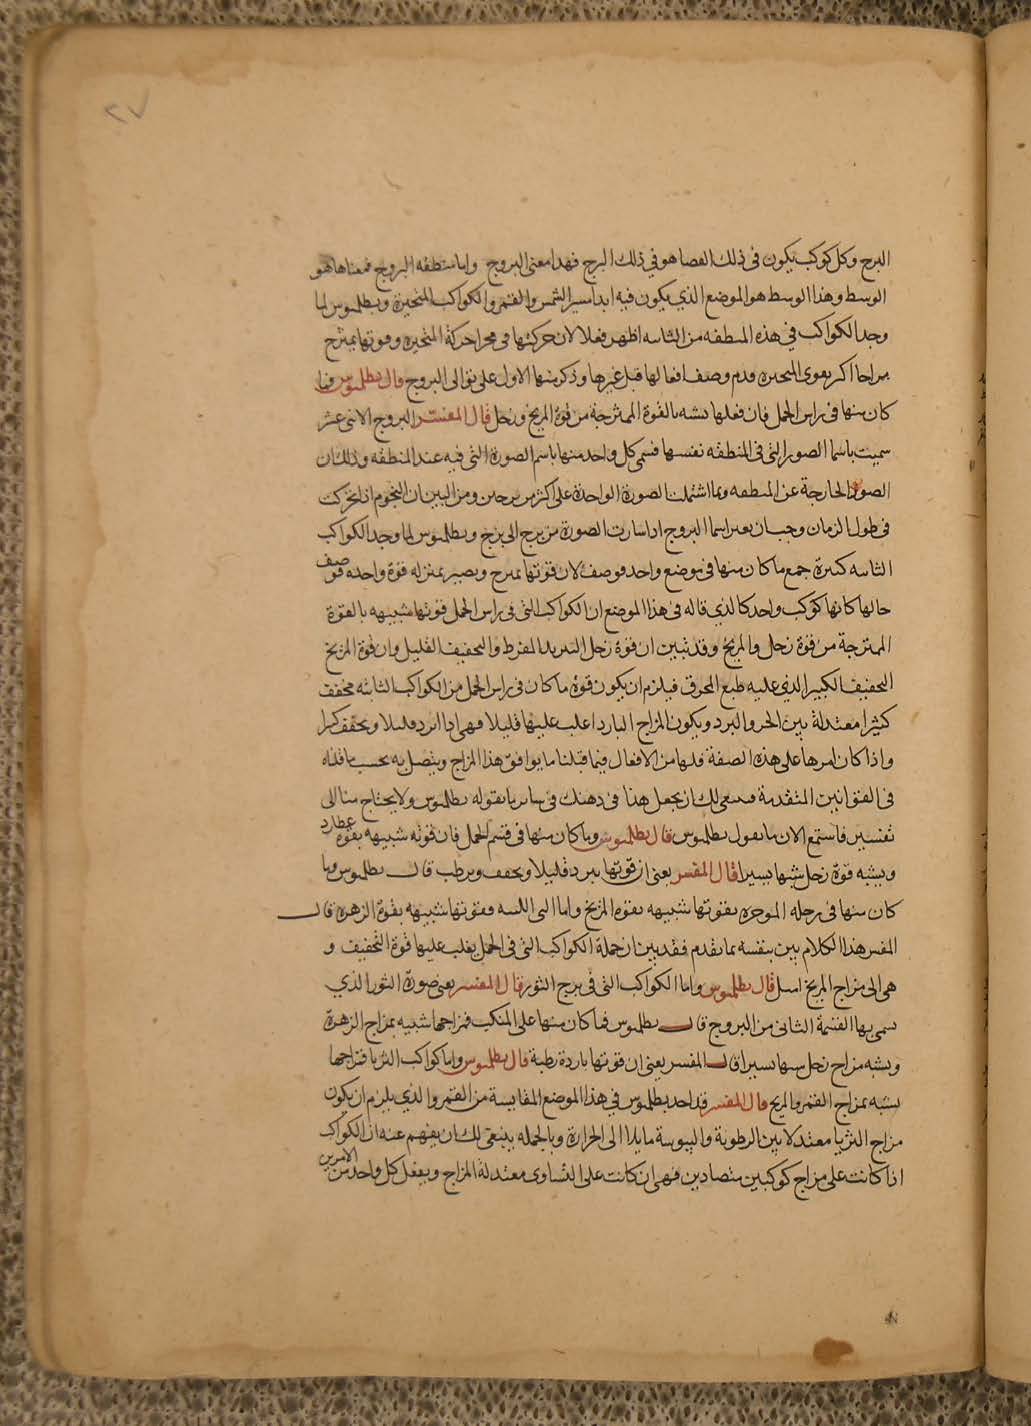 ٢٧
البرج وكل كوكب يكون فى ذلك الفصا هو فى ذلك البرج فهدا معنى البروج واما منطقه البروج فمعناها هو
الوسط وهذا الوسط هو الموضع الذي يكون فيه ابدا سير الشمس والقمر والكواكب المتحيرة وبطلميوس لما
وجد الكواكب في هذه المنطقه من الثابته اظهر فعلا لان حركتها فى مجرا حركة المتحيره وقوتها يمتزج
مزاجا اكبر بقوى المتحيره قدم وصف افعالها قبل غيرها وذكر منها الاول على توالى البروج قال بطلميوس فما
كان منها فى راس الحمل فان فعلها يشبه بالقوة الممتزجة من قوة المريخ وزحل قال المفسر البروج الاثنى عشر
سميت باسما الصور التى فى المنطقه نفسها فسمى كل واحد منها باسم الصورة التى فيه عند المنطقه وذلك ان
الصور الخارجة عن المنطقه وبما اشتملت الصورة الواحدة على اكثر من برجين ومن البين ان النجوم اذا تحركت
فى طول الزمان وجب ان يعبر اسما البروج اذا سارت الصورة من برج الى برج وبطلميوس لما وجد الكواكب
الثابته كثيرة جمع ما كان منها فى موضع واحد فوصف لان قوتها يمتزج ويصير بمنزله قوة واحده فوصف
حالها كانها كوكب واحد كالذي قاله فى هذا الموضع ان الكواكب التى فى راس الحمل قوتها شبيهه بالقوة
الممتزجة من قوة زحل والمريخ وقد تبين ان قوة زحل التبريد المفرط والتجفيف القليل وان قوة المريخ
التجفيف الكبير الذي عليه طبع المحرق فيلزم ان يكون قوة ما كان فى راس الحمل من الكواكب الثابته مجفف
كثيرا معتدلة بين الحر والبرد ويكون المزاج البارد اغلب عليها قليلا فهى اذا تبرد قليلا وتجفف كثيرا
واذا كان امرها على هذه الصفة فلها من الافعال فيما قبلنا ما يوافق هذا المزاج ويتصل به بحسب ما قلناه
فى القوانين المتقدمة فينبغى لك ان تجعل هذا فى دهنك فى ساير ما يقوله بطلميوس ولا يحتاج منا الى
تفسير فاستمع الان ما يقول بطلميوس قال بطلميوس وما كان منها فى قسم الحمل فان قوته شبيهه بقوة عطارد
ويشبه قوة زحل شبها يسيرا قال المفسر يعنى ان قوتها يبرد قليلا ويجفف ويرطب قال بطلميوس وما
كان منها فى رجله الموخره بقوتها شبيهه بقوه المريخ واما التى الليه فقوتها شبيهه بقوة الزهرة قال
المفسر هذا الكلام بين بنفسه بما تقدم فقد بين ان جملة الكواكب التى فى الحمل يغلب عليها قوة التجفيف و
هى الى مزاج المريخ اميل قال بطلميوس واما الكواكب التى فى برج الثور قال المفسر يعنى صورة الثور الذي
سمى بها القسمة الثانى من البروج قال بطلميوس فما كان منها على المنكب فمزاجها شبيه بمزاج الزهرة
ويشبه مزاج زحل شبها يسيرا قال المفسر يعنى ان قوتها باردة رطبة قال بطلميوس واما كواكب الثريا فمزاجها
يشبه بمزاج القمر والمريخ قال المفسر قد احد بطلميوس فى هذا الموضع المقايسة من القمر والذي يلزم ان يكون
مزاج الثريا معتدلا بين الرطوبة واليبوسة مايلا الى الحرارة وبالجمله ينبغى لك ان يفهم عنه ان الكواكب
اذا كانت على مزاج كوكبين متضادين فهى ان كانت على التساوى معتدلة المزاج ويفعل كل واحد من الامرين